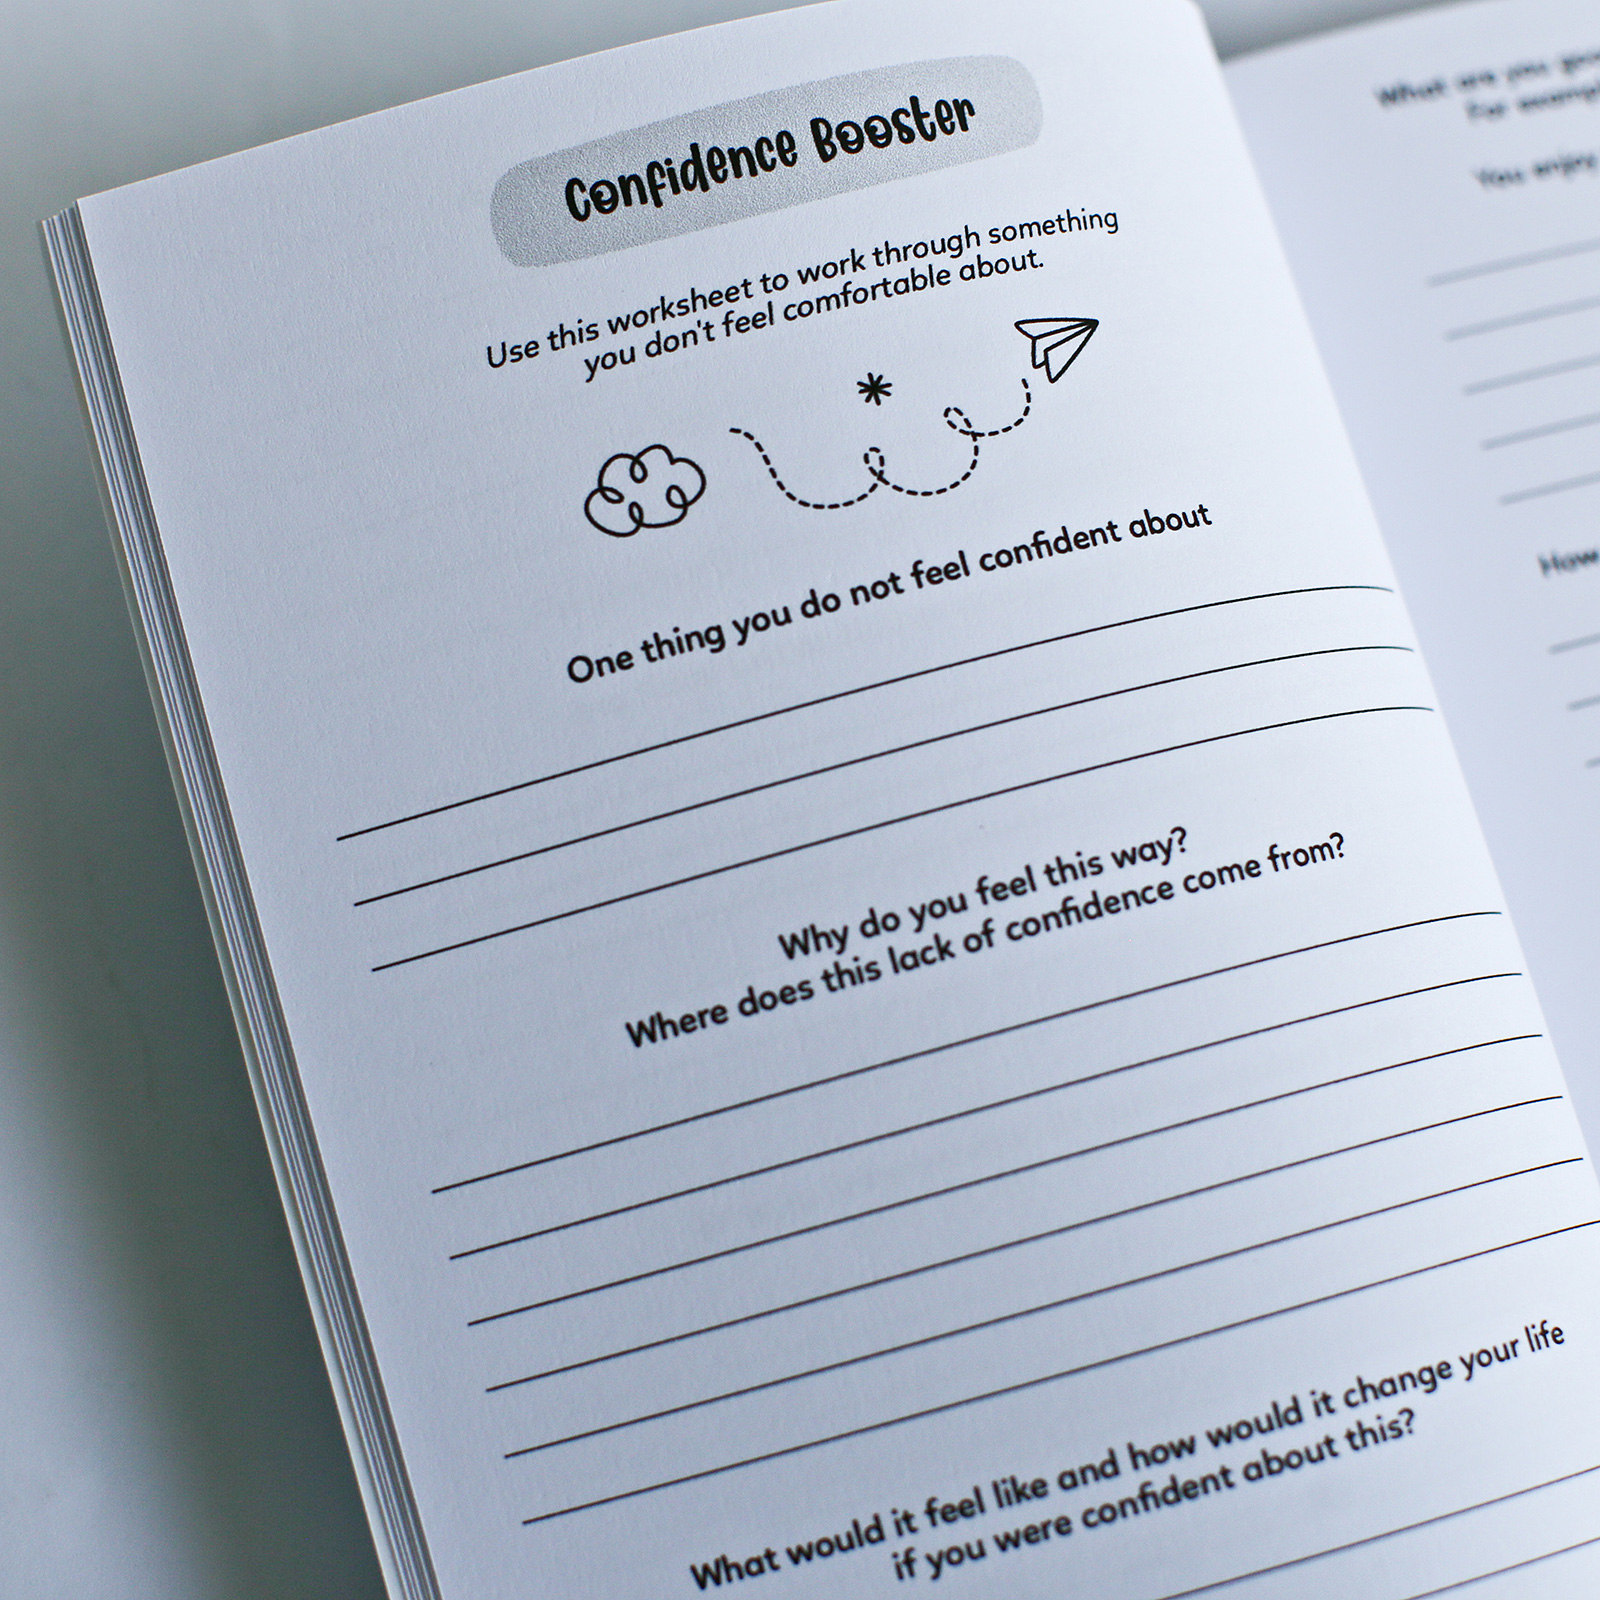 Confidence Booster
Use this worksheet to work through something
you don't feel comfortable about.
One thing you do not feel confident about
Why do you feel this way?
Where does this lack of confidence come from?
What would it feel like and how would it change your life
if you were confident about this?
What are you
For
You enjoy
How